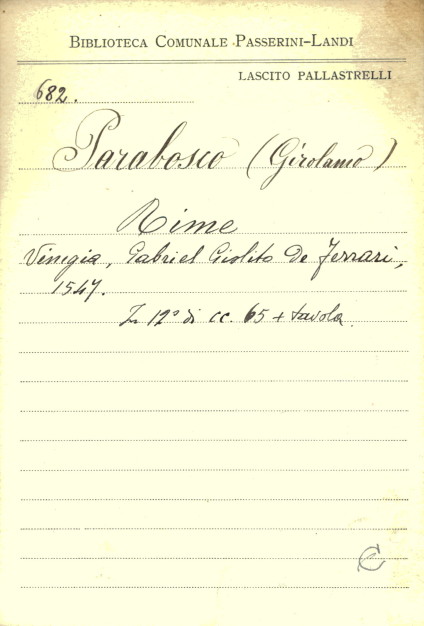 BIBLIOTECA COMUNALE PASSERINI-LANDI
LASCITO PALLASTRELLI
682.
Parabosco (Girolamo)
Rime
Vinegia, Gabriel Giolito De Ferrari,
1547.
In 12° di cc. 65 + tavola.
C